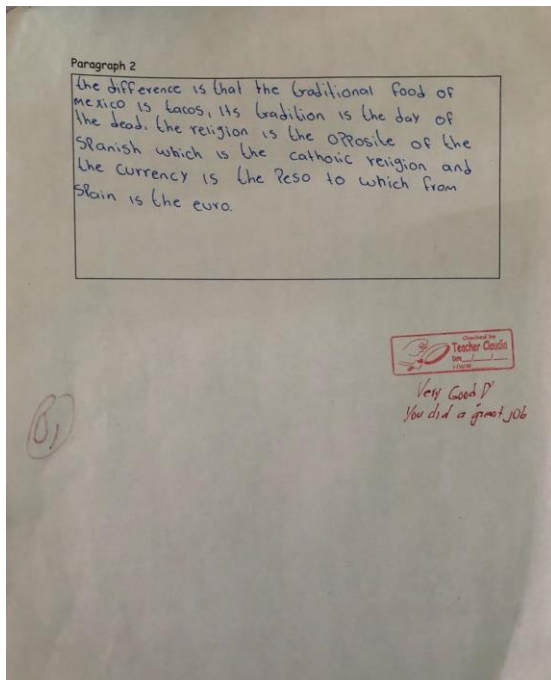 Paragraph 2
the difference is that the traditional food of
mexico is tacos, its tradition is the day of
the dead. the religion is the opposite of the
spanish which is the cathoric religion and
the currency is the Peso to which from
spain is the euro.
Checked by
Teacher Claudia
Date
Very Good
You did a great job